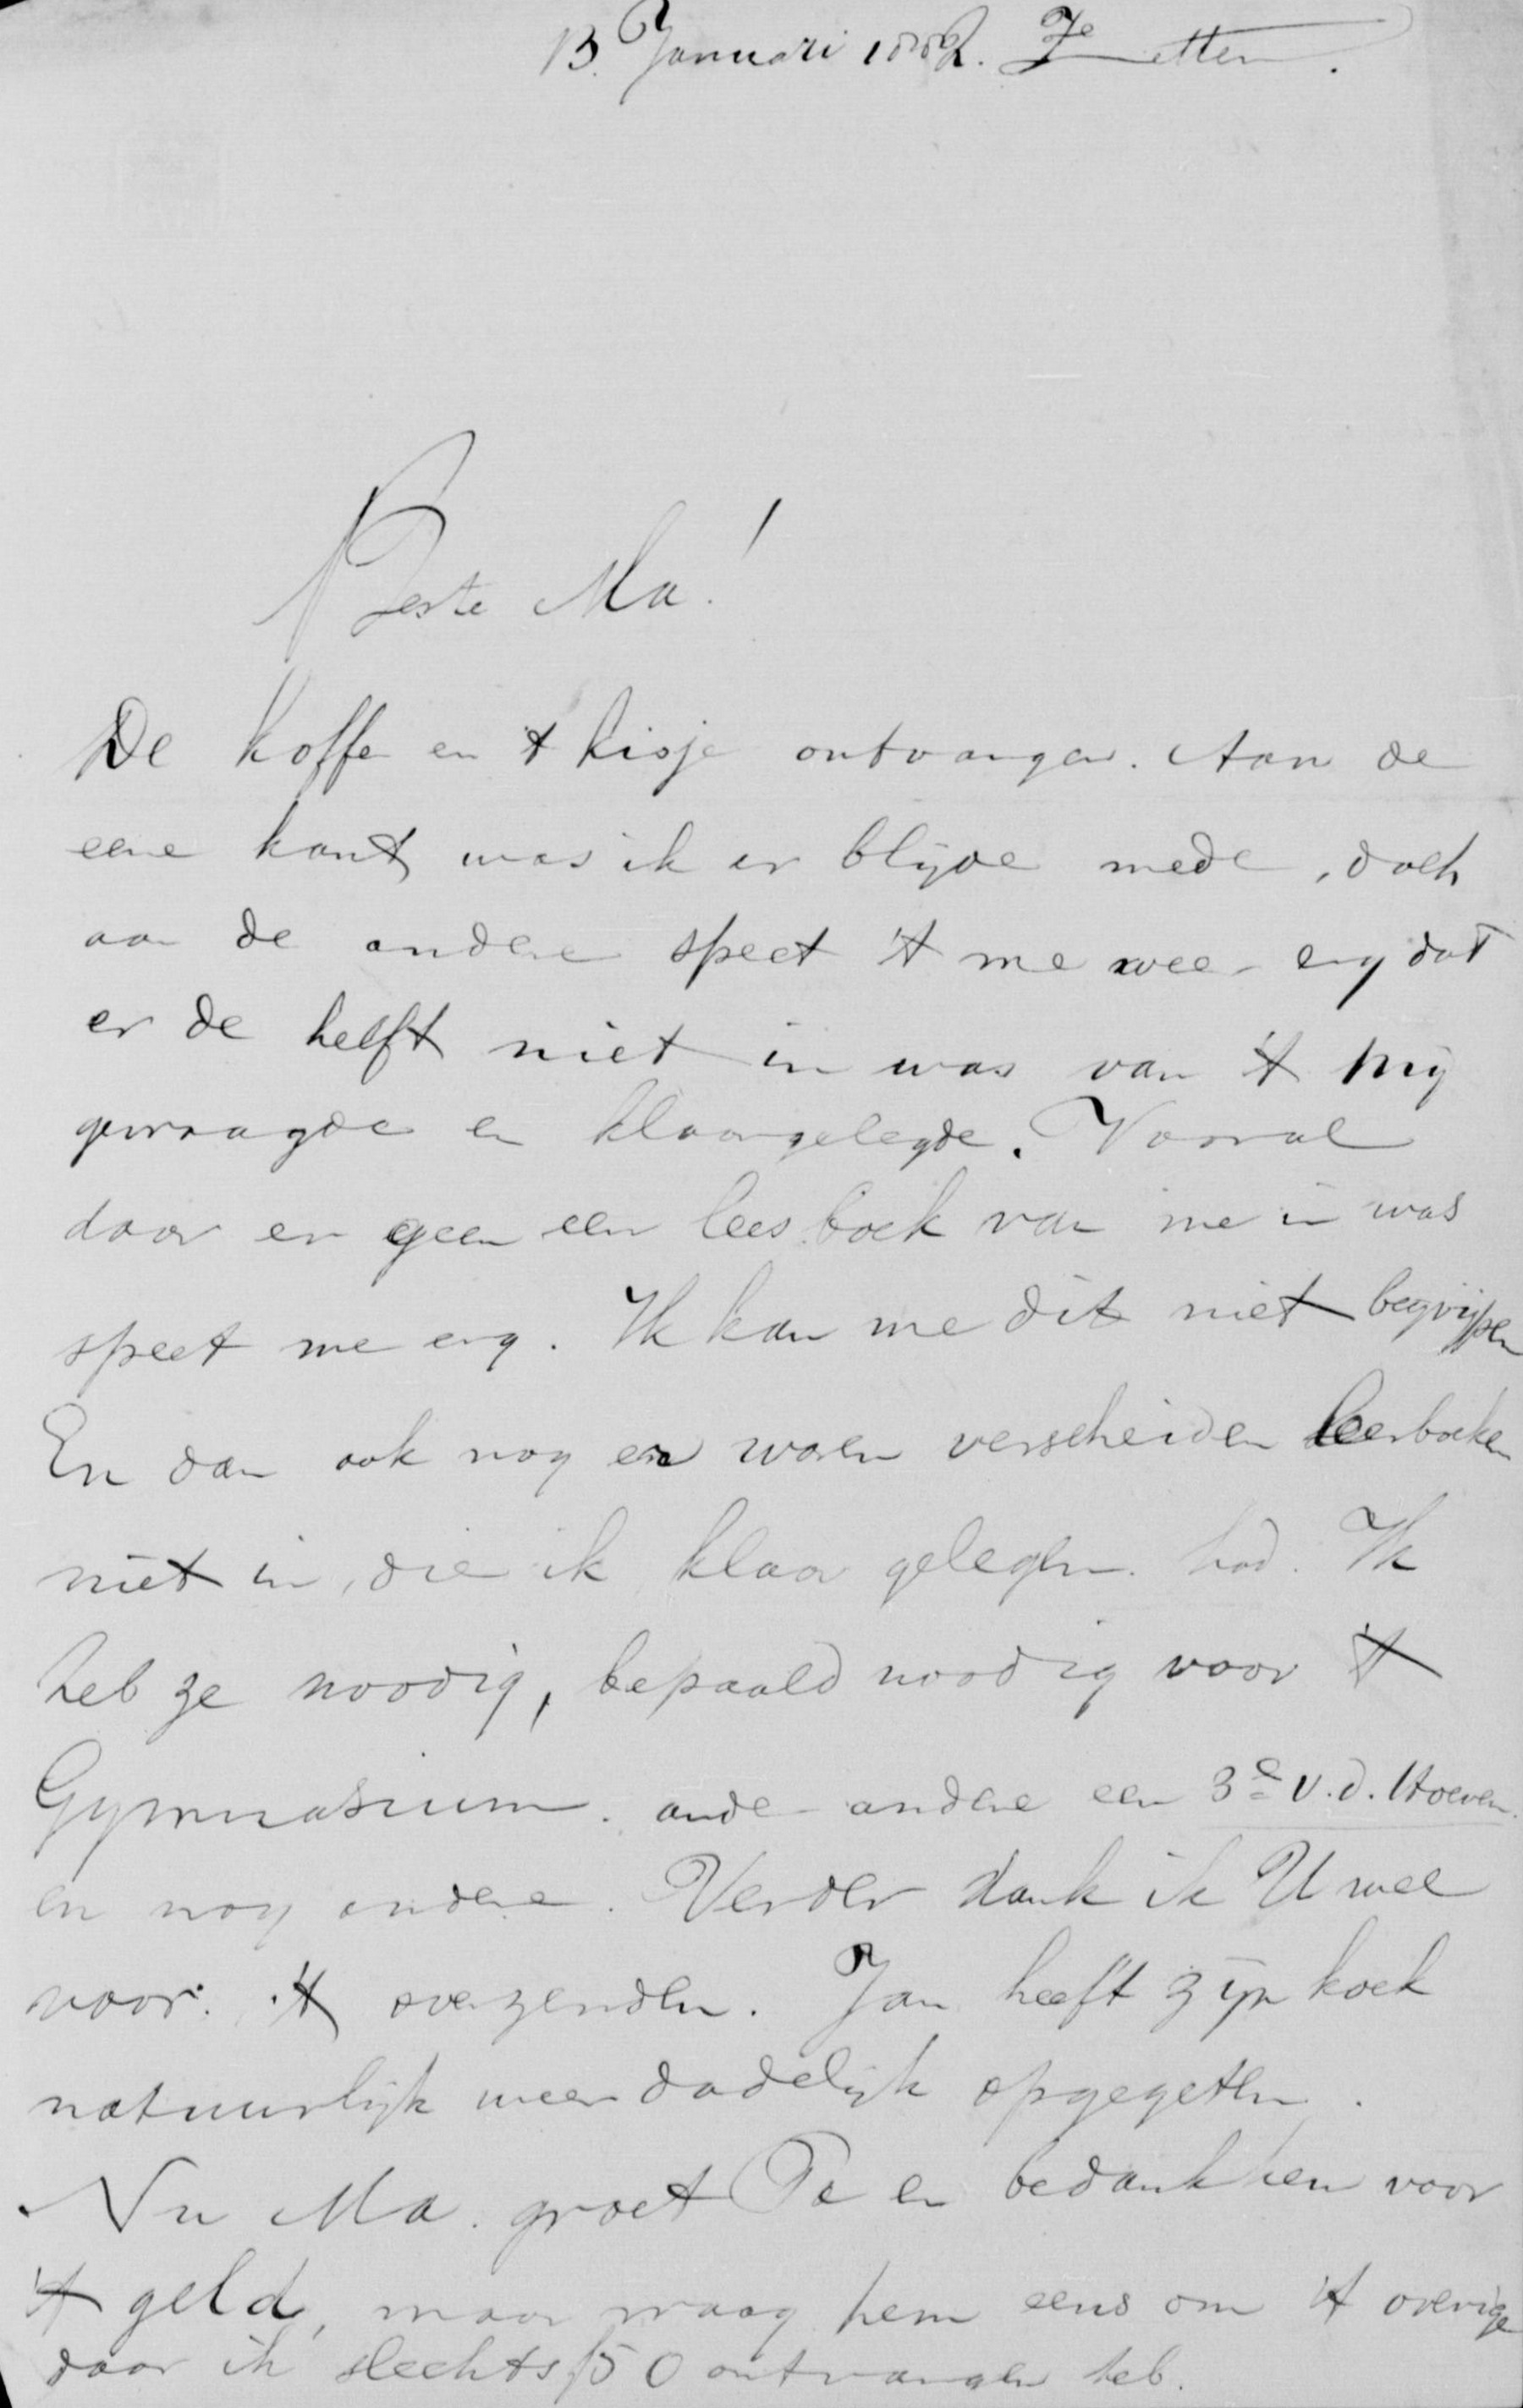 13. Januari 1882. Zetten.
Beste Ma!
De koffe en 't kisje ontvangen. Aan de
eene kant was ik er blijde mede, doch
aan de andere speet 't me weer erg dat
er de helft niet in was van 't mij
gevraagde en klaargelegde. Vooral
daar er geen een leesboek van me in was
speet me erg. Ik kan me dit niet begrijpen
En dan ook nog er waren verscheiden leerboeken
niet in, die ik klaar gelegen had. Ik
heb ze noodig, bepaald noodig voor 't
Gymnasium. onder andere een 3e v.d. Hoeven.
en nog andere. Verder dank ik U wel
voor 't overzenden. Jan heeft zijn koek
natuurlijk weer dadelijk opgegeten.
Nu Ma. groet Pa en bedank hem voor
't geld, maar vraag hem eens om 't overige
daar ik slechts ƒ50 ontvangen heb.